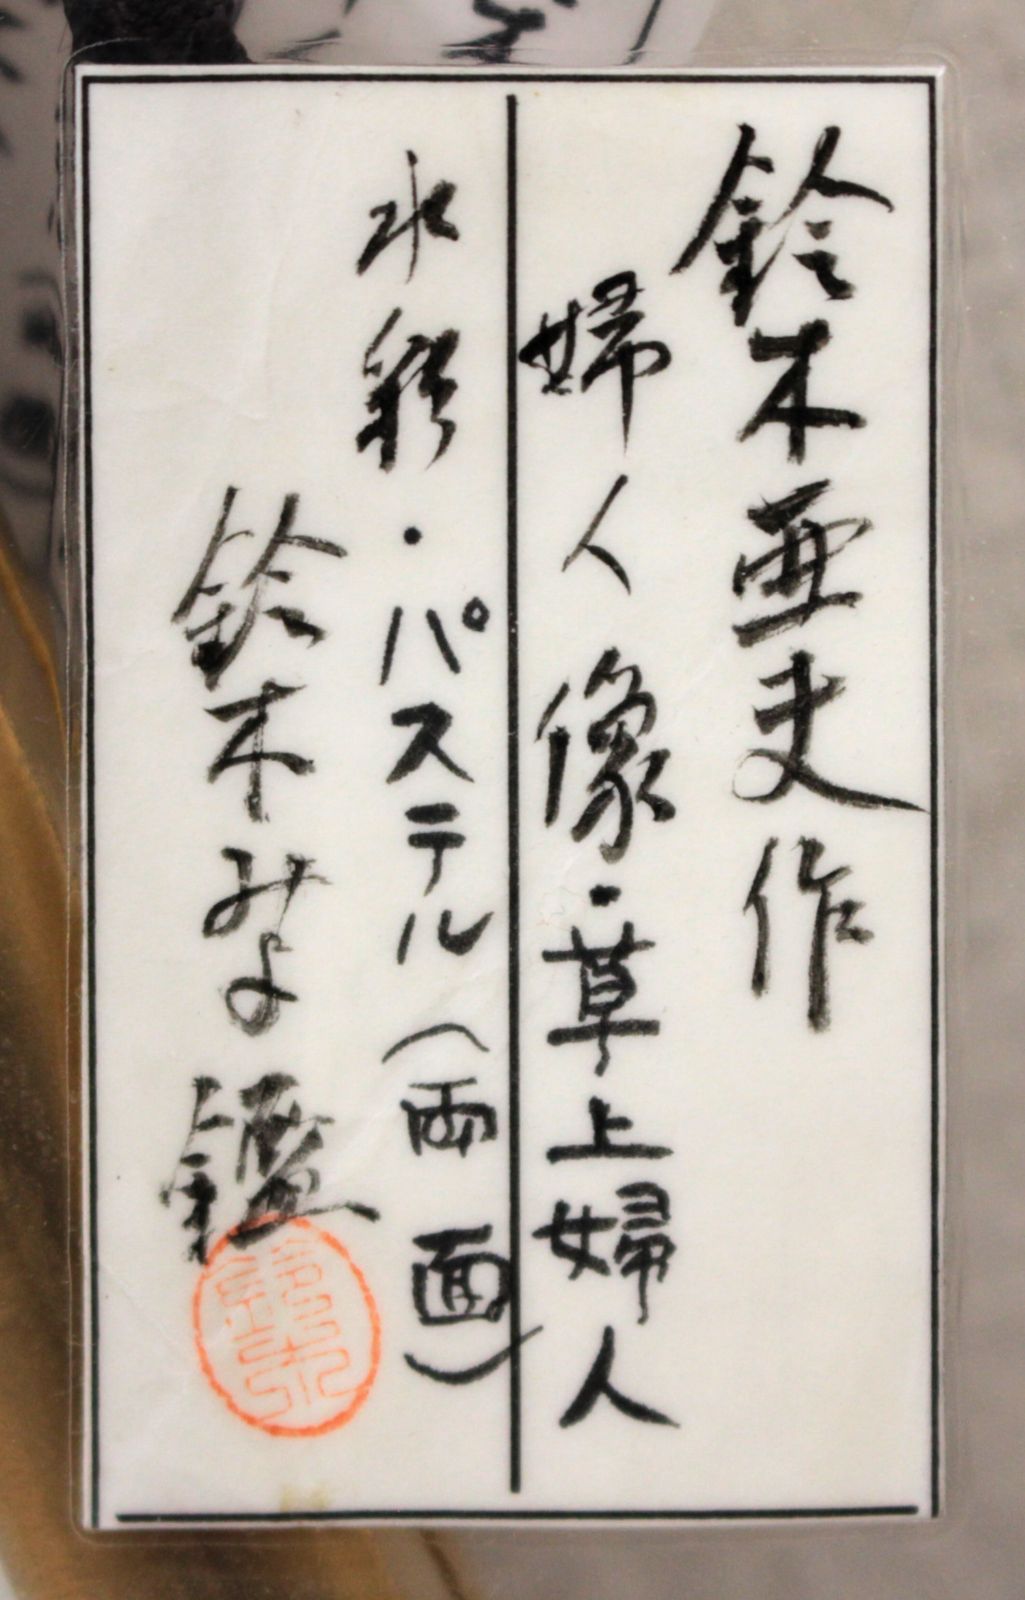 鈴木亜夫作
婦人像・草上婦人
水彩・パステル(両面)
鈴木みよ鑑